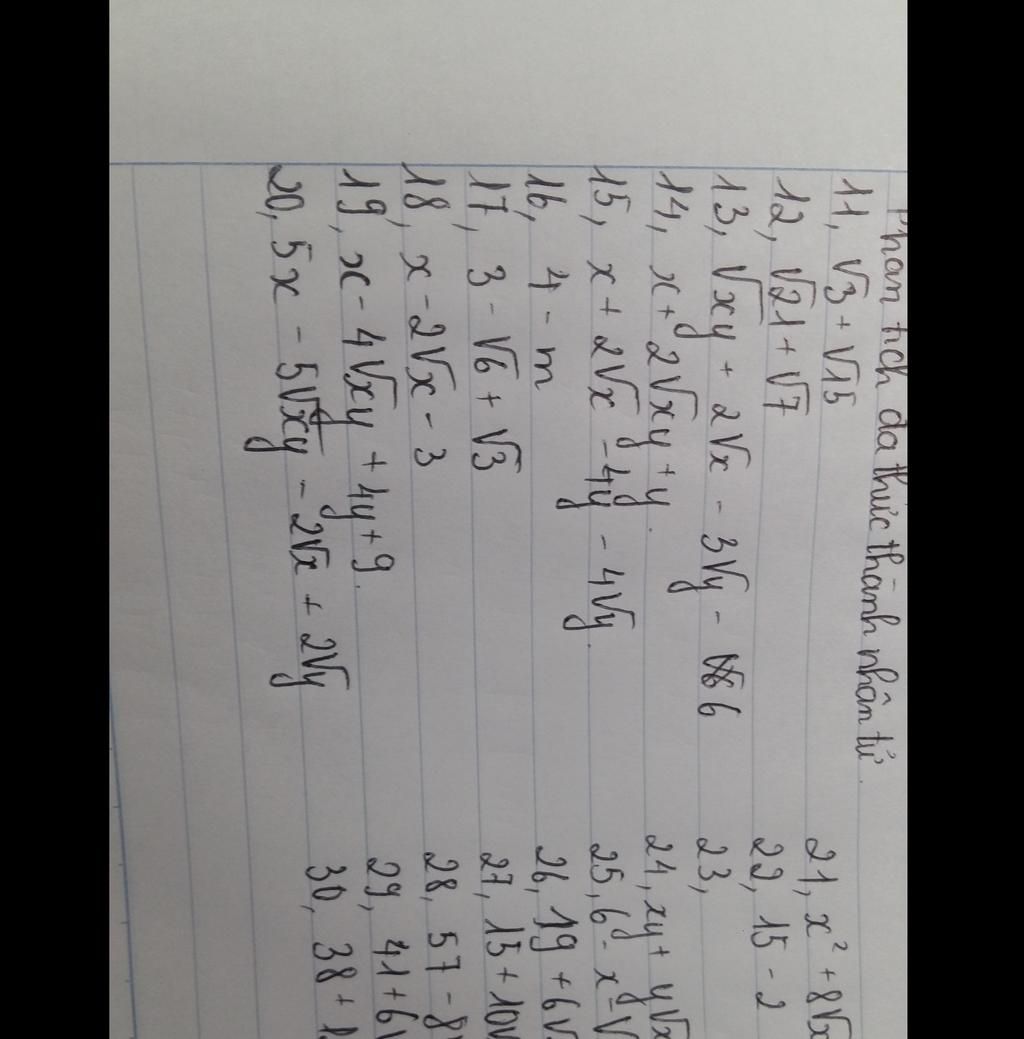 Phân tích đa thức thành nhân tử.
11, √3 + √15
12, √21 + √7
13, √xy + 2√x - 3√y - 6
14, x + 2√xy + y.
15, x + 2√x - 4y - 4√y.
16, 4 - m
17, 3 - √6 + √3
18, x - 2√x - 3
19, x - 4√xy + 4y + 9.
20, 5x - 5√xy - 2√x + 2√y
21, x² + 8√x
22, 15 - 2
23,
24, xy + y√x
25, 6 - x - √
26, 19 + 6√
27, 15 + 10√
28, 57 - 8
29, 41 + 6√
30, 38 + 1